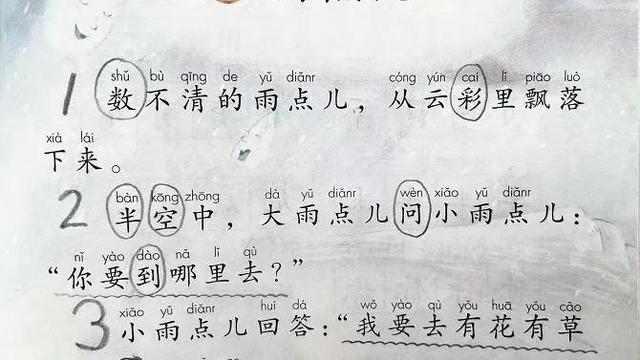 shǔ bù qīng de yǔ diǎnr cóng yún cai lǐ piāo luò
1 数不清的雨点儿，从云彩里飘落
xià lái
下来。
bàn kōng zhōng dà yǔ diǎnr wèn xiǎo yǔ diǎnr
2 半空中，大雨点儿问小雨点儿：
nǐ yào dào nǎ lǐ qù
“你要到哪里去？”
xiǎo yǔ diǎnr huí dá wǒ yào qù yǒu huā yǒu cǎo
3 小雨点儿回答：“我要去有花有草